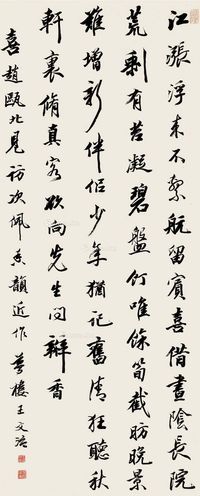 江漲浮來不繫航留賓喜借晝陰長院
荒剩有苔凝碧盤冷唯餘筍截肪晚景
難增新伴侶少年猶記舊清狂聽秋
軒裏脩真客欲向先生問瓣香
喜趙甌北見訪次佩香韻近作 夢樓王文治